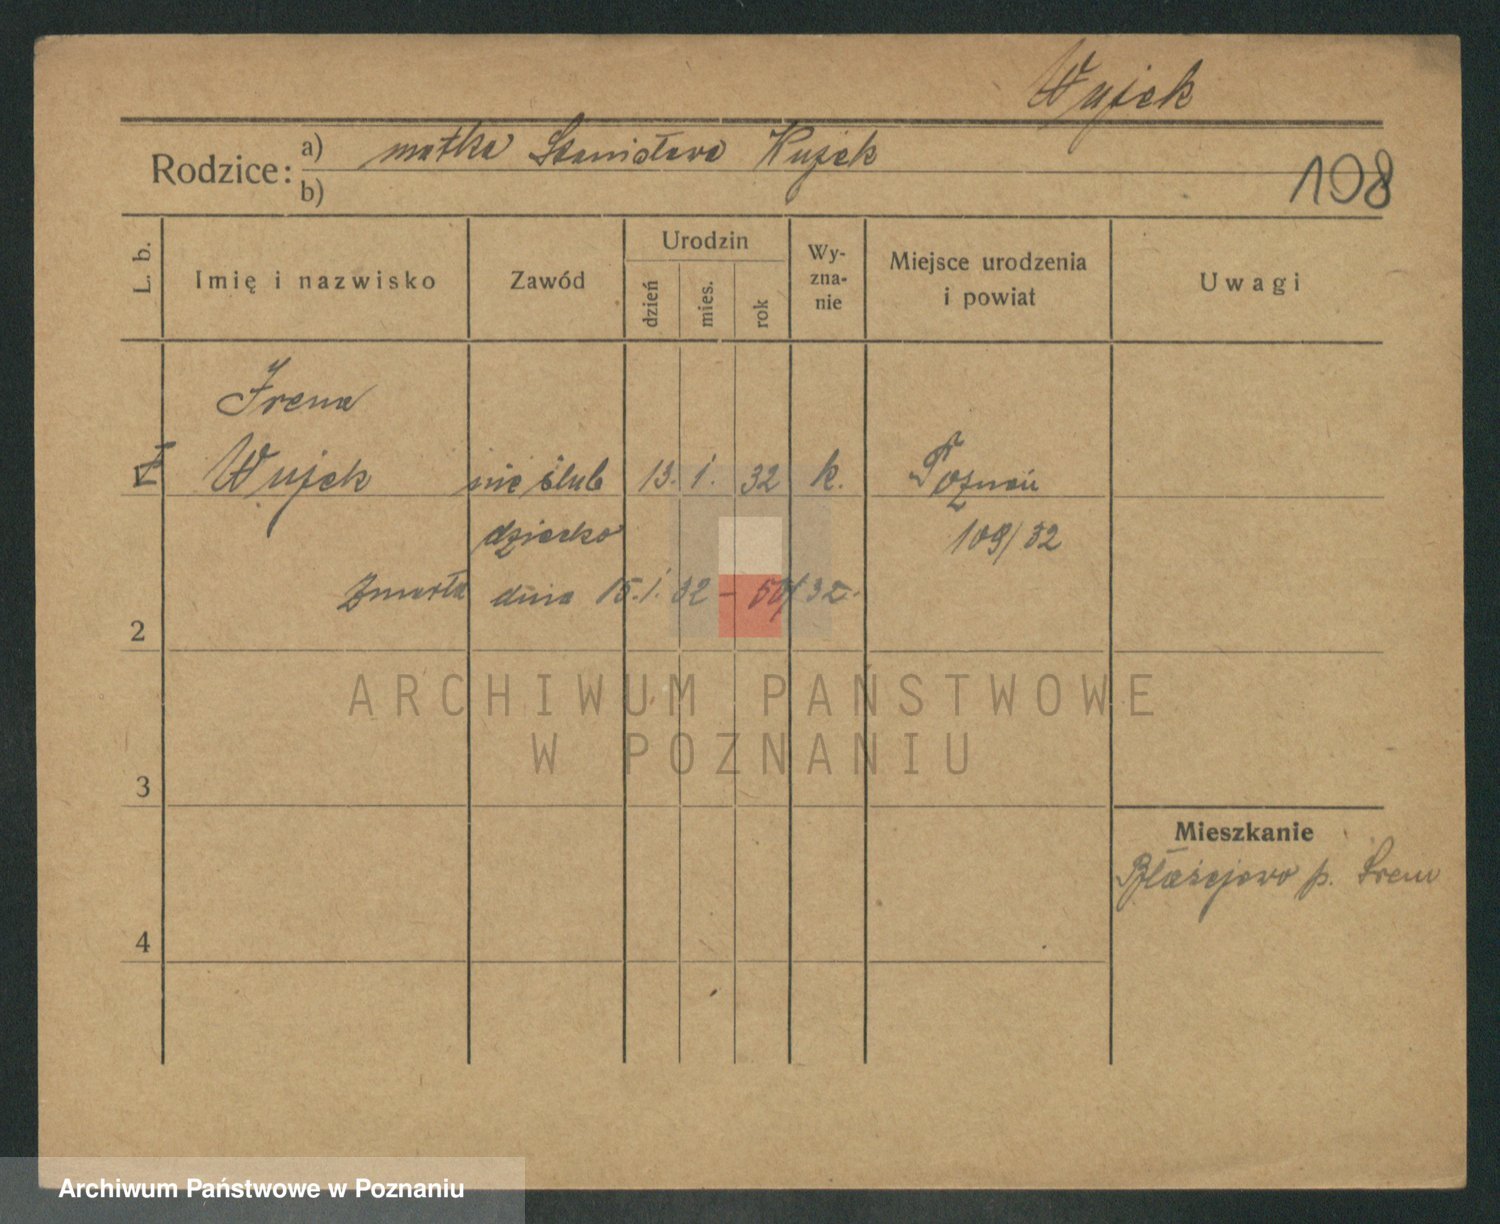 Wujek
Rodzice: a) matka Stanisława Wujek
b)
108
L. b.
Imię i nazwisko
Zawód
Urodzin
dzień
mies.
rok
Wy-
zna-
nie
Miejsce urodzenia
i powiat
Uwagi
Irena
Wujek nie ślub 13. 1. 32 k. Poznań
dziecko 109/32
Zmarła dnia 15.1.32 - 50/32.
2
3
4
Mieszkanie
Błażejewo p. Śrem
ARCHIWUM PAŃSTWOWE
W POZNANIU
Archiwum Państwowe w Poznaniu